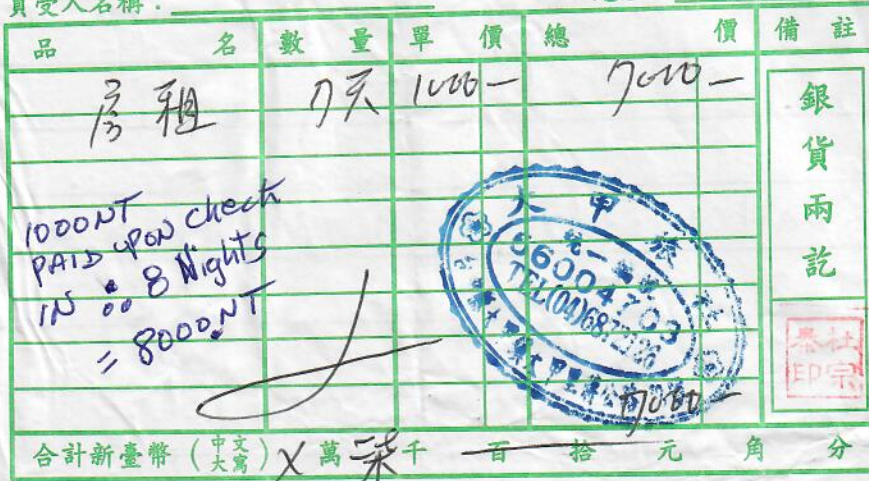 買受人名稱：
品名 數量 單價 總價 備註
房租 7天 1000- 7000-
銀貨兩訖
1000NT
PAID UPON Check
IN ∴ 8 Nights
= 8000.NT
大甲旅社
統一編號
66004703
TEL(04)6872236
7000-
合計新臺幣（中文大寫）X萬柒千百拾元角分